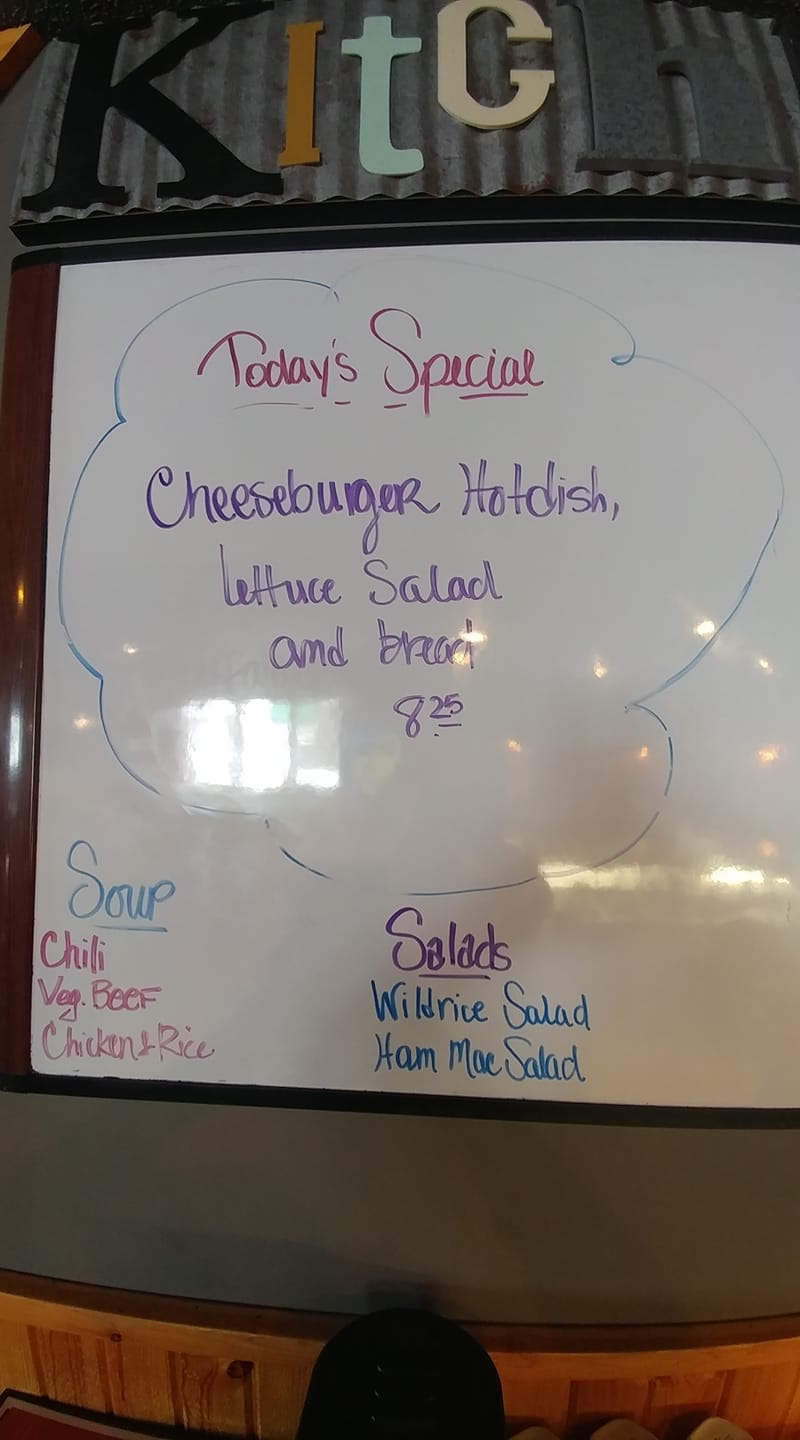 Kitch
Today's Special
Cheeseburger Hotdish,
lettuce Salad
and bread
8 25
Soup
Chili
Veg. Beef
Chicken & Rice
Salads
Wildrice Salad
Ham Mac Salad